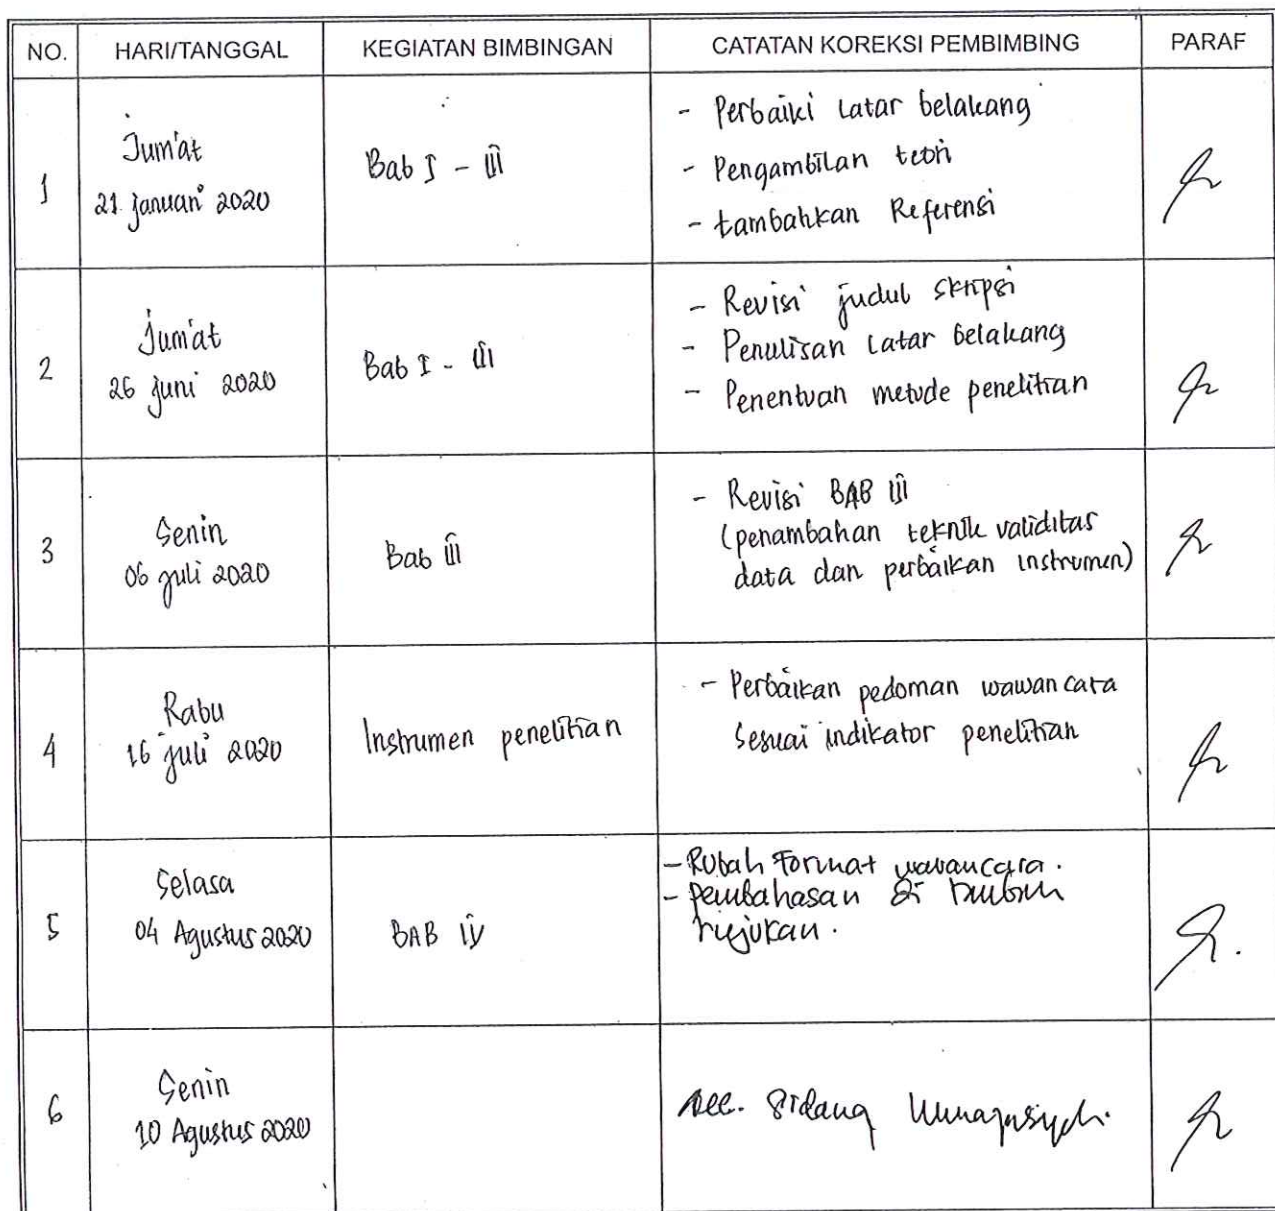 NO. HARI/TANGGAL KEGIATAN BIMBINGAN CATATAN KOREKSI PEMBIMBING PARAF
1
Jum'at
21 Januari 2020
Bab I - III
- Perbaiki Latar belakang
- Pengambilan teori
- tambahkan Referensi
2
Jum'at
26 Juni 2020
Bab I - III
- Revisi judul skripsi
- Penulisan Latar belakang
- Penentuan metode penelitian
3
Senin
06 Juli 2020
Bab III
- Revisi BAB III
(penambahan teknik validitas
data dan perbaikan instrumen)
4
Rabu
16 Juli 2020
Instrumen penelitian
- Perbaikan pedoman wawancara
Sesuai indikator penelitian
5
Selasa
04 Agustus 2020
BAB IV
- Rubah Format wawancara.
- pembahasan di
rujukan.
6
Senin
10 Agustus 2020
Acc. Sidang Munaqasyah.